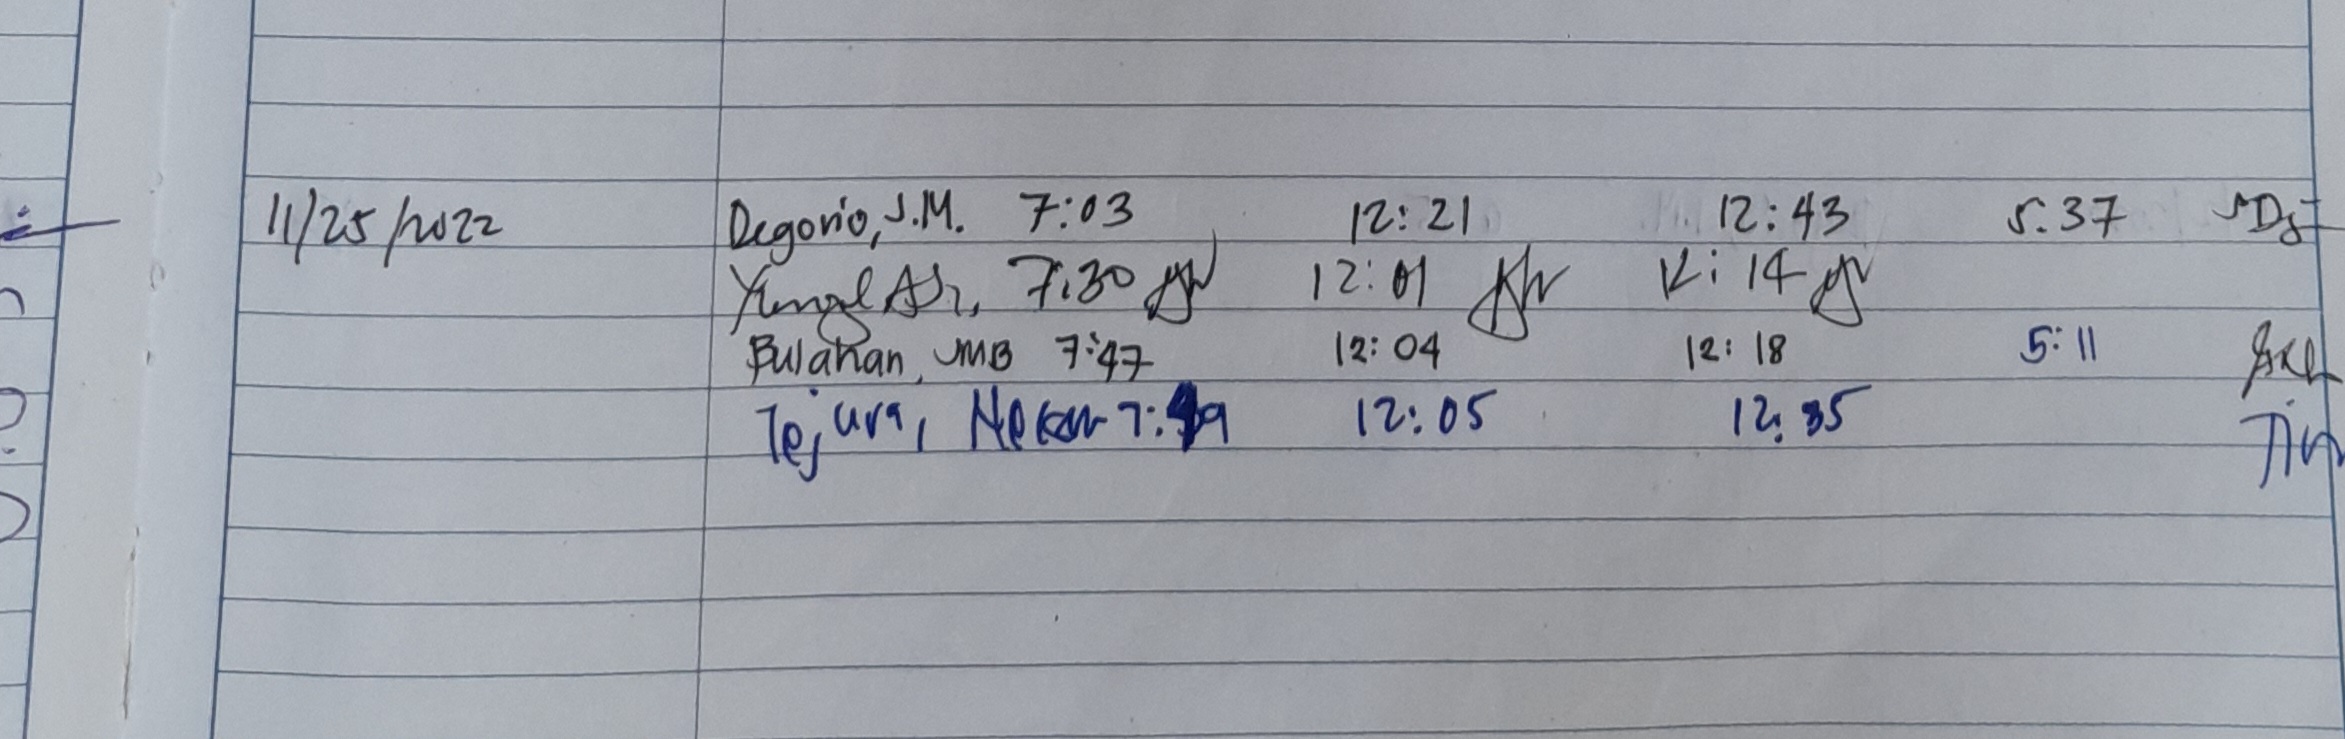 11/25/2022 Degorio, J.M. 7:03 12:21 12:43 5:37
7:30 12:01 12:14
Bulahan, JMB 7:47 12:04 12:18 5:11
Tejura, 12:05 12:35